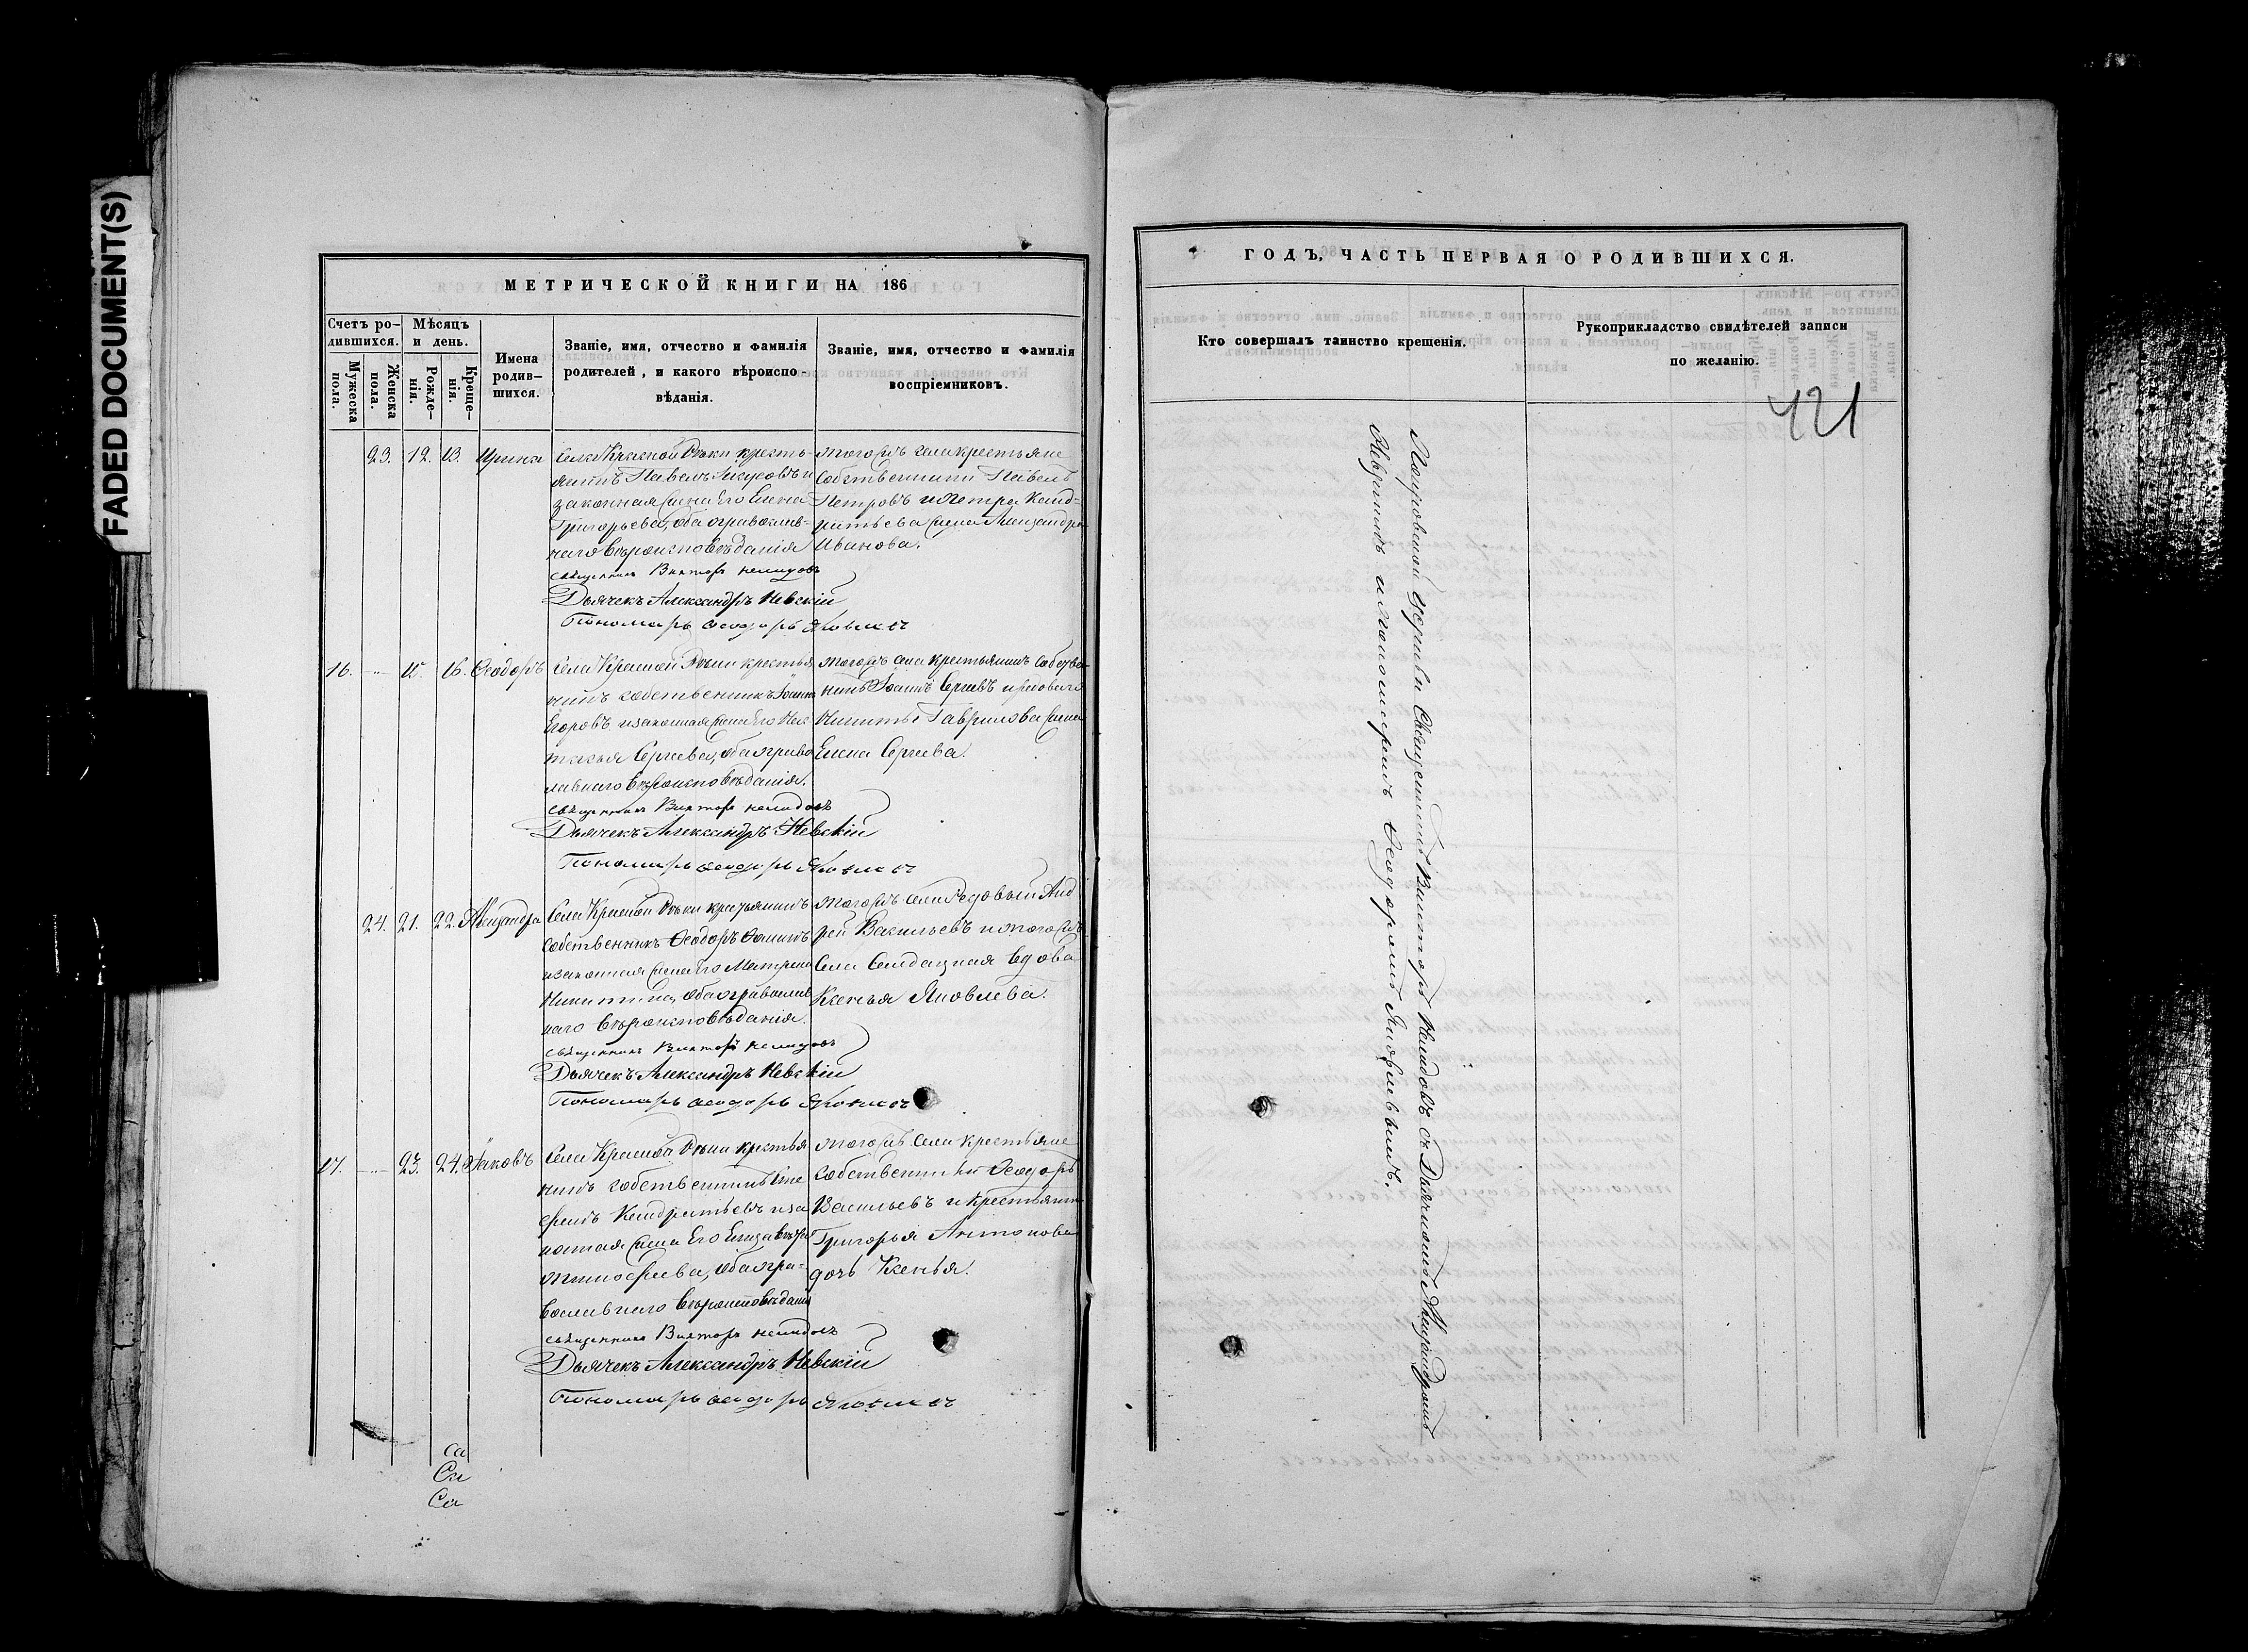 FADED DOCUMENT(S)
МЕТРИЧЕСКОЙ КНИГИ НА 186
Счетъ ро-
дившихся.
Мужеска
пола.
Женска
пола.
Мѣсяцъ
и день.
Рожде-
нія.
Креще-
нія.
Имена
родив-
шихся.
Званіе, имя, отчество и фамилія
родителей, и какого вѣроиспо-
вѣданія.
Званіе, имя, отчество и фамилія
воспріемниковъ.
23. 12. 13. Ирина
Села Красной Рѣки кресть-
янинъ Павелъ и
законная жена Его Елена
Григорьева, оба православ-
наго вѣроисповѣданія
священникъ Викторъ Нелидовъ
Дьячекъ Александръ Невскій
Пономарь Ѳеодоръ Яковлевъ
тогожъ села крестьяне
собственники Павелъ
Петровъ и Петра Канд-
ратьева жена Александра
Иванова.
16. 15. 16. Ѳеодоръ
Села Красной Рѣки крестья
нинъ собственникъ Іоаннъ
Егоровъ и законная жена Его На-
талья Сергеева, оба право
лавнаго вѣроисповѣданія.
священникъ Викторъ Нелидовъ
Дьячекъ Александръ Невскій
Пономарь Ѳеодоръ Яковлевъ
тогожъ села крестьянинъ собстве-
никъ Іоаннъ Сергеевъ и рядоваго
Никиты Гаврилова жена
Елена Сергеева.
24. 21. 22. Александра
Села Красной Рѣки крестьянинъ
собственникъ Ѳеодоръ Ѳоминъ
и законная жена Его Матрена
Никитина, оба православ
наго вѣроисповѣданія.
священникъ Викторъ Нелидовъ
Дьячекъ Александръ Невскій
Пономарь Ѳеодоръ Яковлевъ
тогожъ села рядовый Анд
рей Васильевъ и тогожъ
села солдацкая вдова
Ксенья Яковлева.
17. 23. 24. Іаковъ
Села Красной Рѣки крестья
нинъ собственникъ
Кандратьевъ и за
конная жена Его Елизавета
Тимофеева, оба пра-
вославнаго вѣроисповѣданія
священникъ Викторъ Нелидовъ
Дьячекъ Александръ Невскій
Пономарь Ѳеодоръ Яковлевъ
тогожъ села крестьяне
собственники Ѳеодоръ
Васильевъ и крестьянина
Григорья Антонова
дочь Ксенья.
Са
Си
Са
ГОДЪ, ЧАСТЬ ПЕРВАЯ О РОДИВШИХСЯ.
Кто совершалъ таинство крещенія.
Рукоприкладство свидѣтелей записи
по желанію.
421
Покровской церкви Священникъ Викторъ Нелидовъ съ Дьячкомъ Александромъ
Невскимъ и пономаремъ Ѳеодоромъ Яковлевымъ.